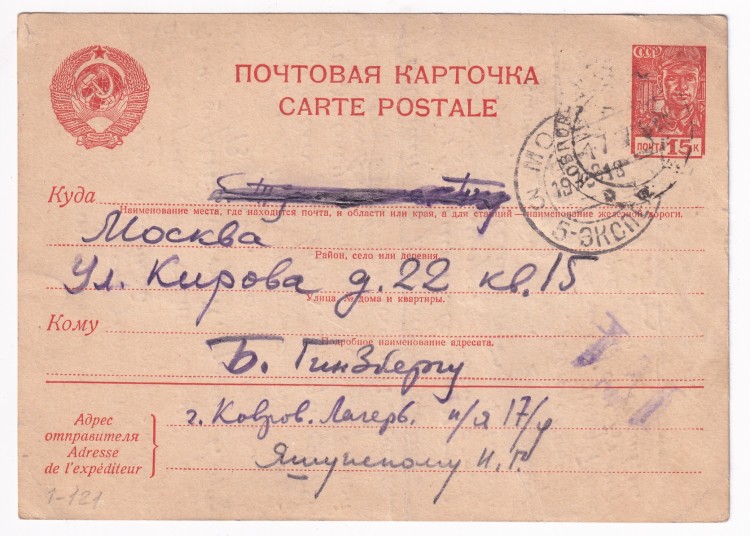 СССР
ПОЧТОВАЯ КАРТОЧКА
CARTE POSTALE
ПОЧТА 15 К
МО
5-ЭКСП
Куда
Наименование места, где находится почта, и области или края, а для станций — наименование железной дороги.
Москва
Район, село или деревня.
Ул. Кирова д. 22 кв. 15
Улица, № дома и квартиры.
Кому
Подробное наименование адресата.
Б. Гинзбергу
Адрес отправителя
Adresse de l'expéditeur
г. Ковров. Лагерв. п/я 17/у
Яшунскому И. Г.
1-121